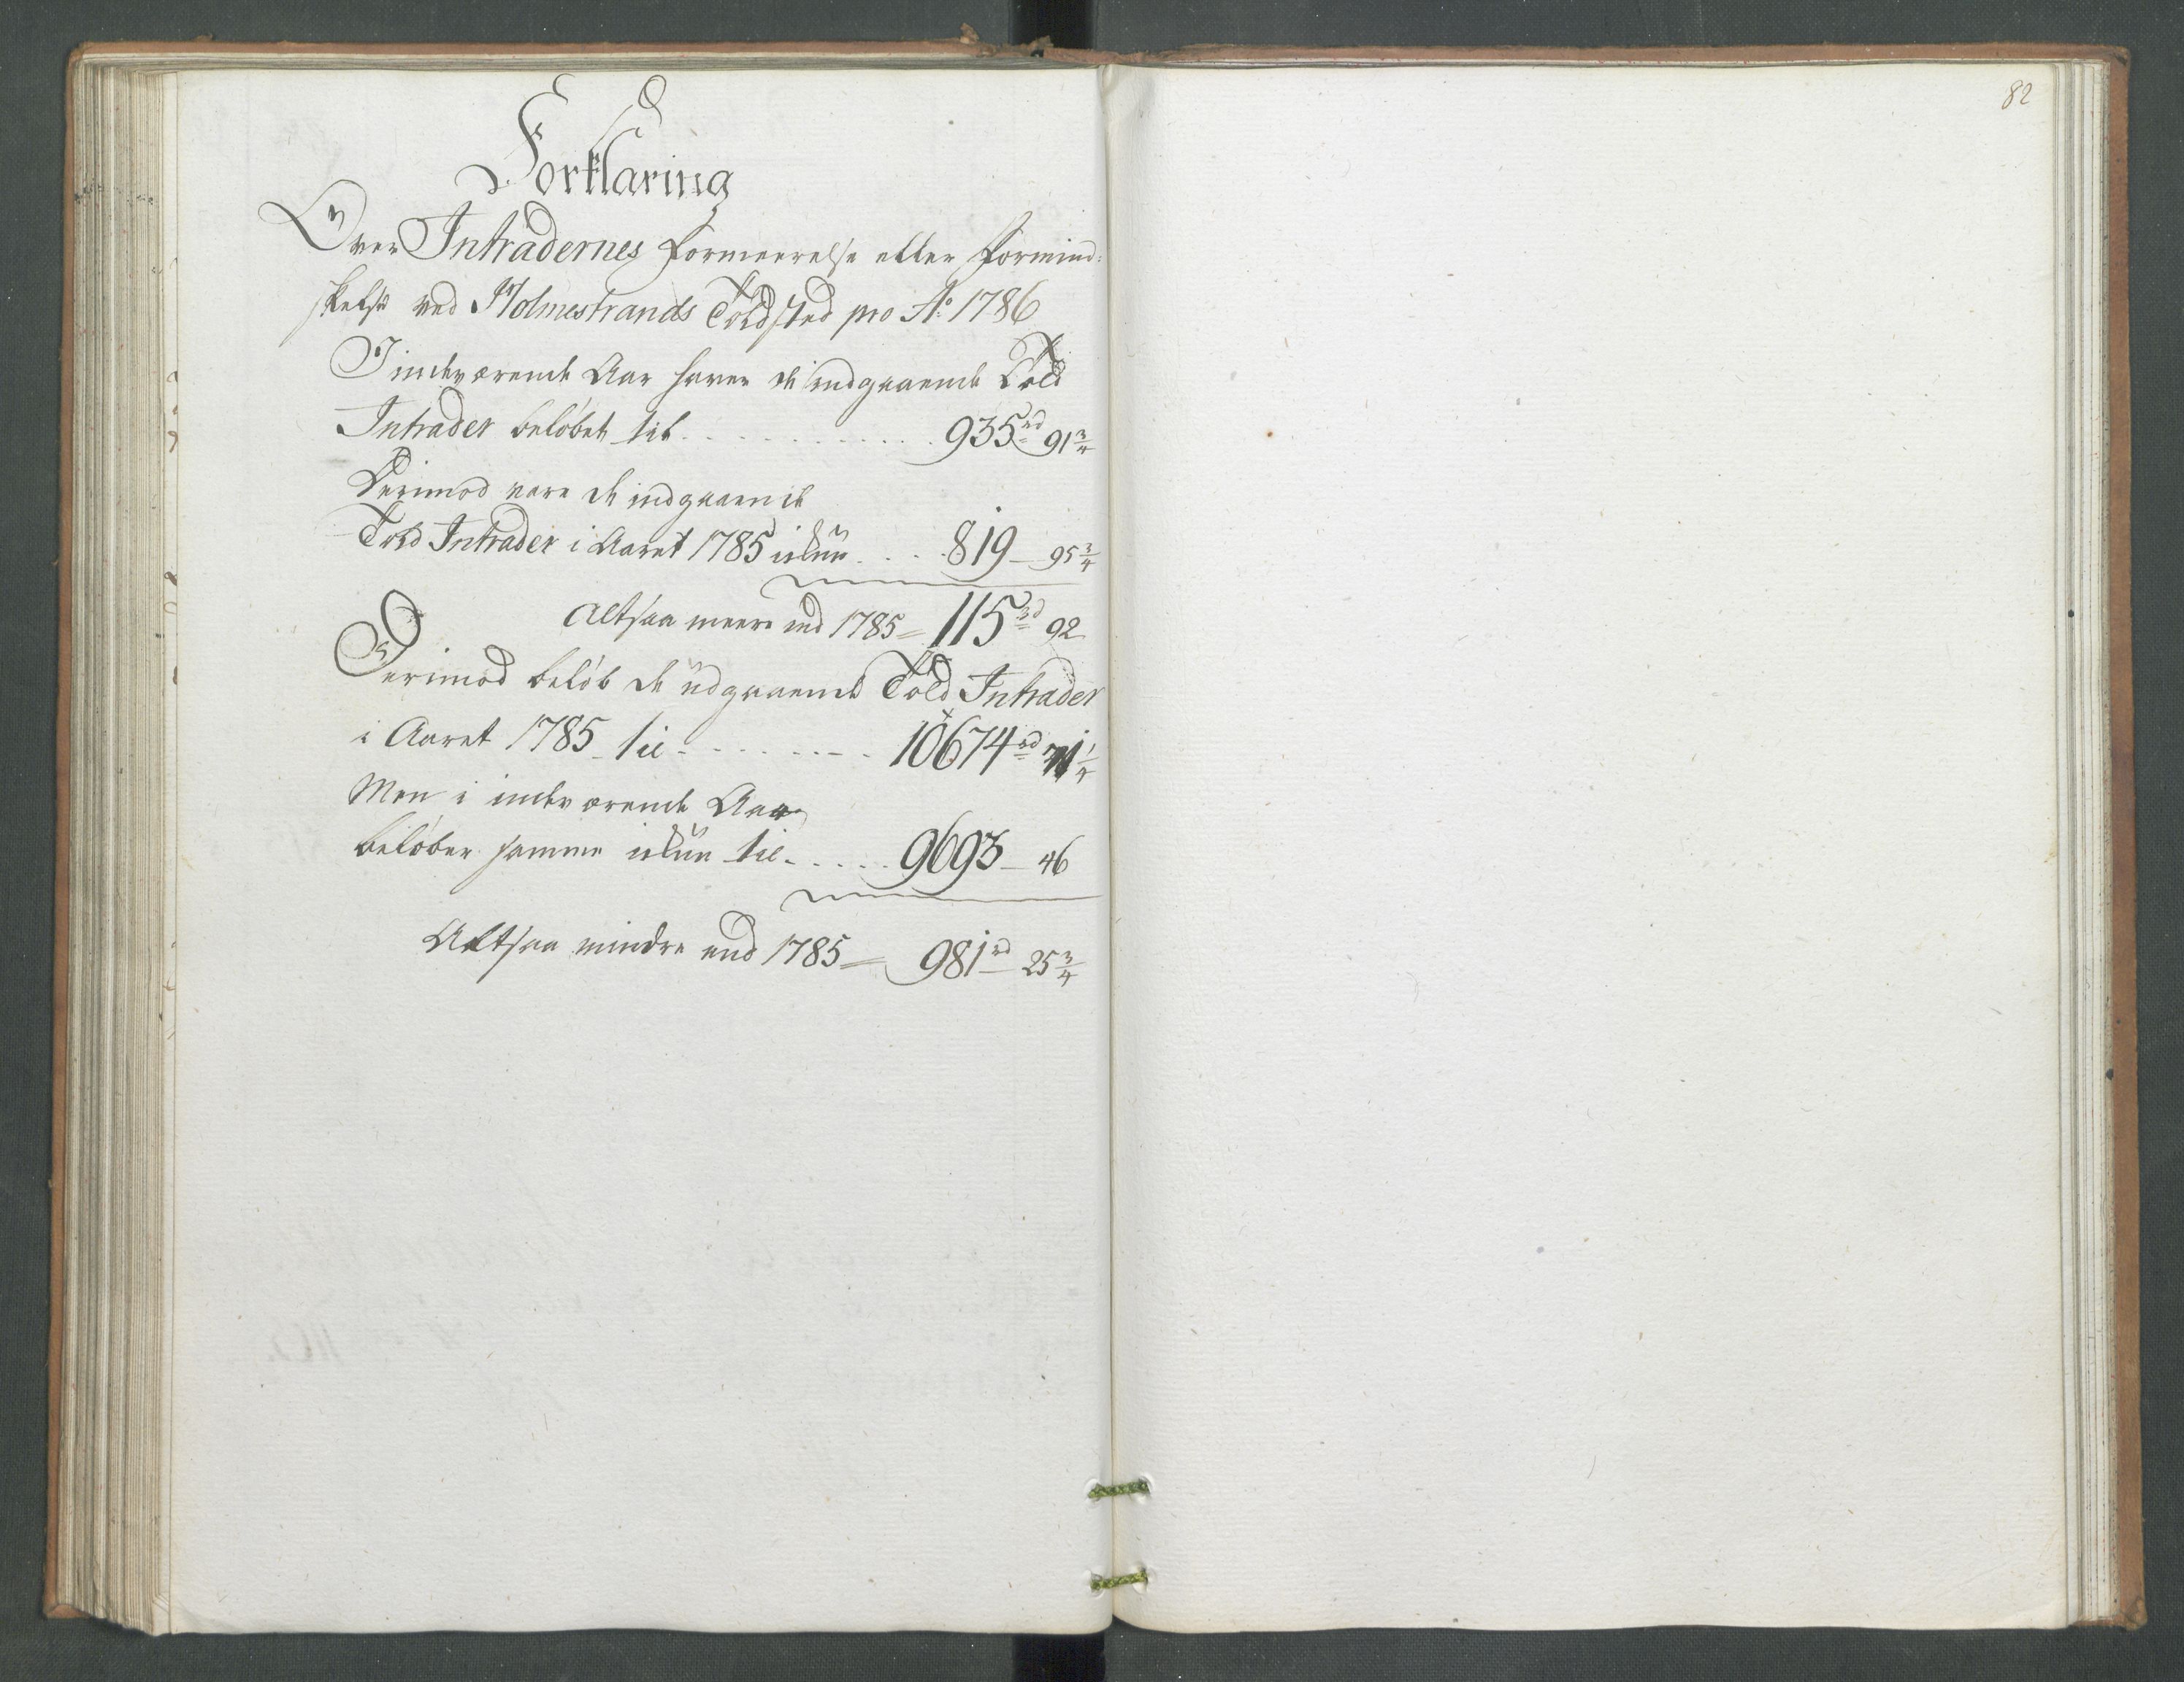 82
Forklaring
Over Intradernes Formeerelse eller Formind:
skelse ved Holmestrands Toldsted pro Ao: 1786
I indeværende Aar haver de indgaaende Told
Intrader beløbet til . . . . . . . . . . . . 935 rd 91 3/4
Derimod vare de indgaaende
Told Intrader i Aaret 1785 ickun . . . 819 _ 95 3/4
Altsaa meere end 1785 = 115 rd 92
Derimod beløb de udgaaende Told Intrader
i Aaret 1785 til . . . . . . . . 10674 rd 71 3/4
Men i indeværende Aar
beløber samme ickun til . . . . . 9693 _ 46
Altsaa mindre end 1785 = 981 rd 25 3/4